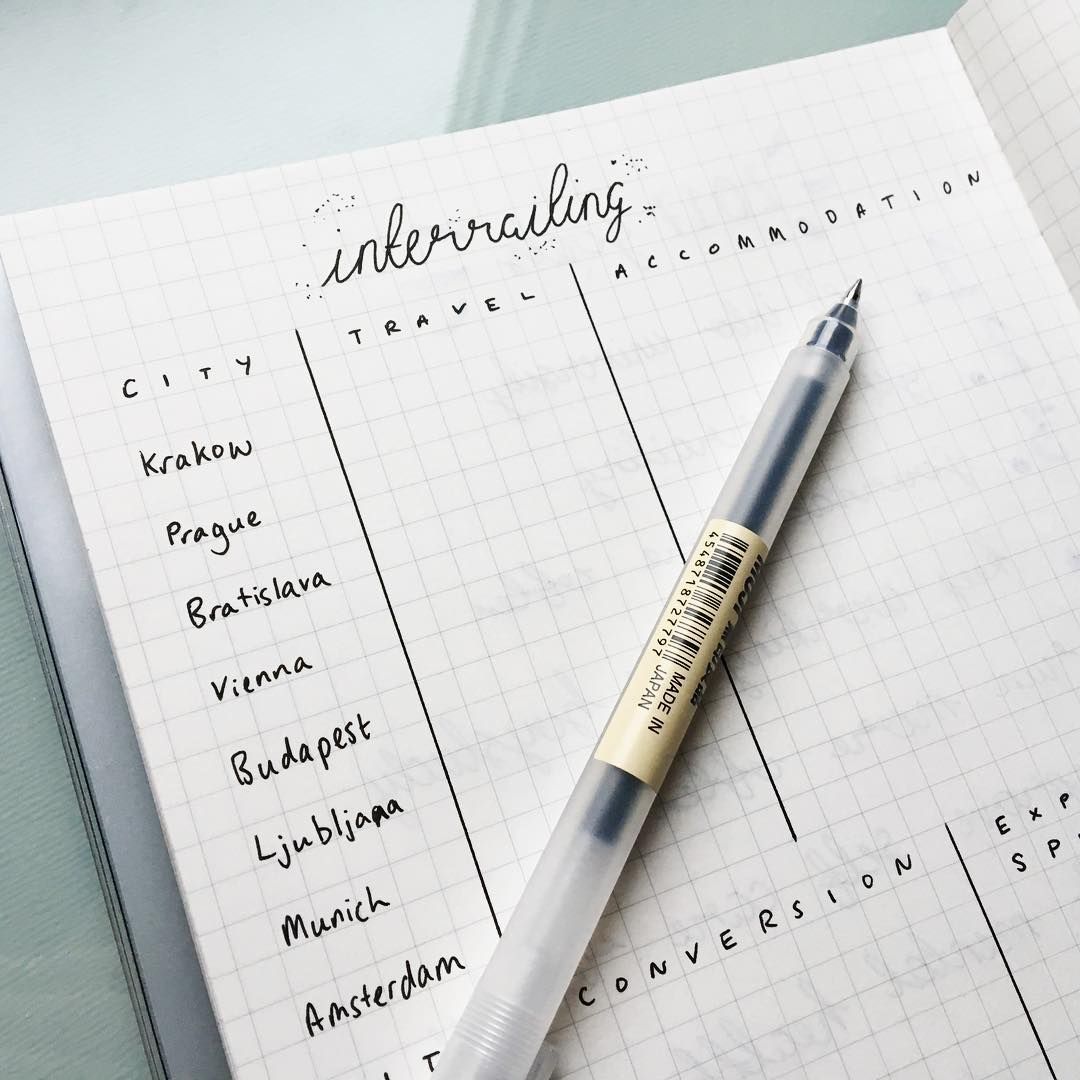 interrailing
CITY
TRAVEL
ACCOMMODATION
Krakow
Prague
Bratislava
Vienna
Budapest
Ljubljana
Munich
Amsterdam
CONVERSION
4548718727797
MADE IN
JAPAN